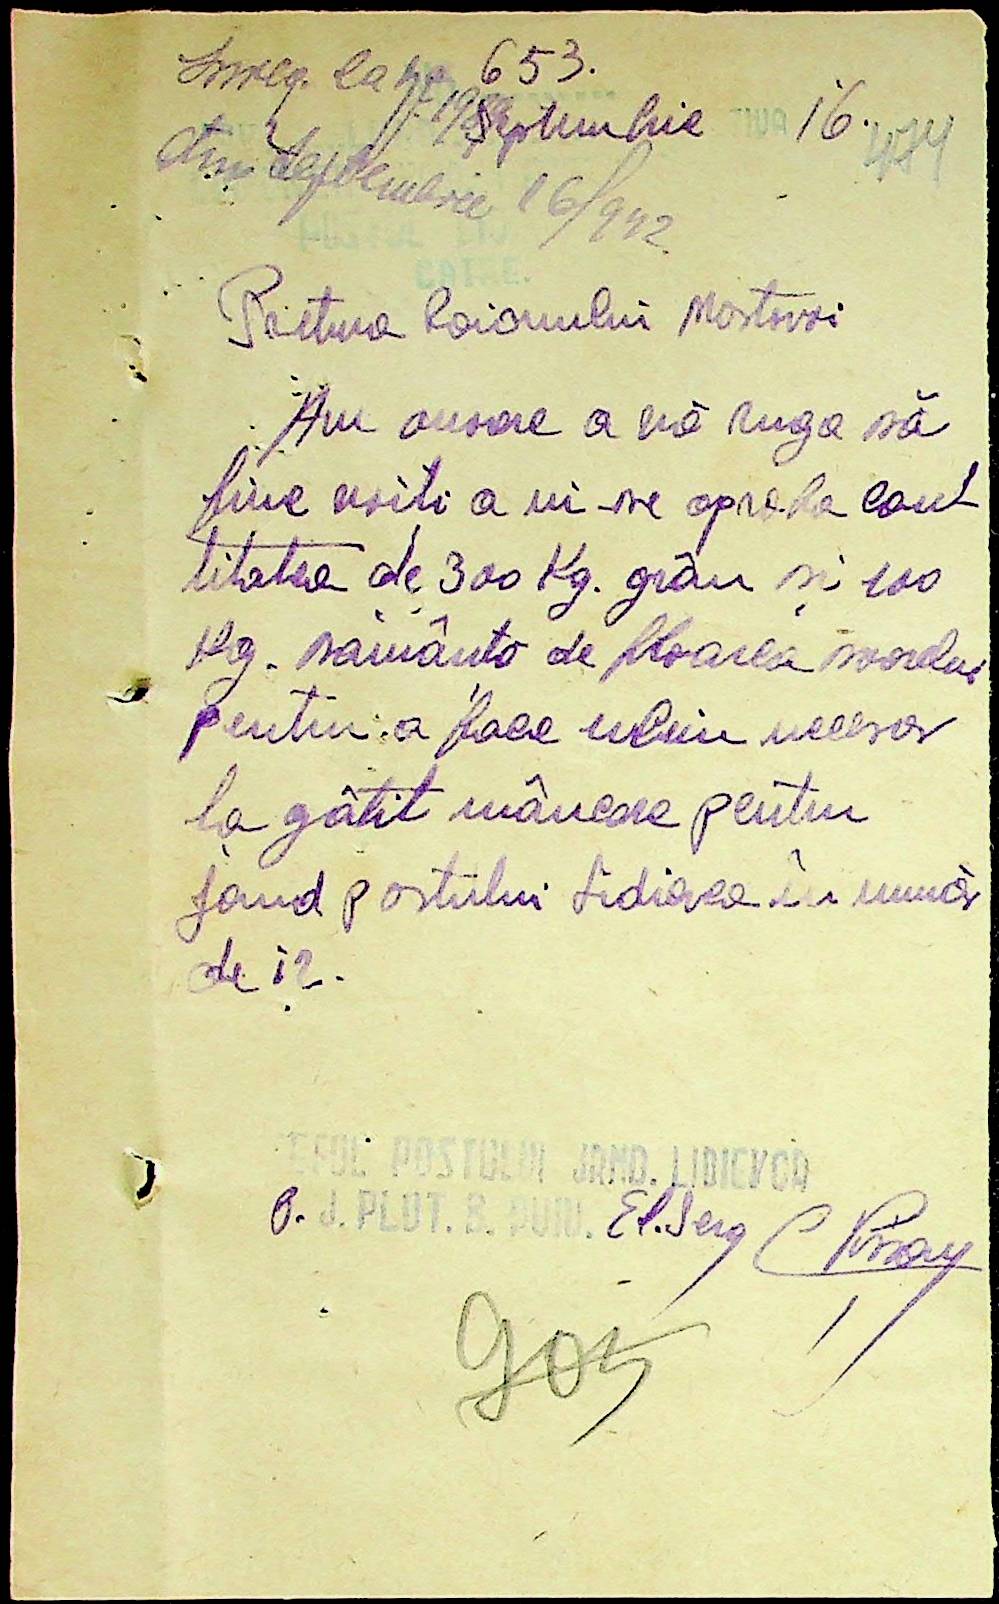 Înreg. la No 653.
Septembrie 16.
din Septembrie 16/942
474
CATRE.
Pretura Raionului Mostovoi
Am onoare a vă ruga să
bine voiti a ni se aproba cant
titatea de 300 Kg. grân si 100
Kg. sământo de floarea soarelui
pentru a face uleiu necesar
la gătit mâncare pentru
jand postului Lidievca în număr
de 12.
EFUL POSTULUI JAND. LIDIEVCA
P. J. PLUT. El. Serg